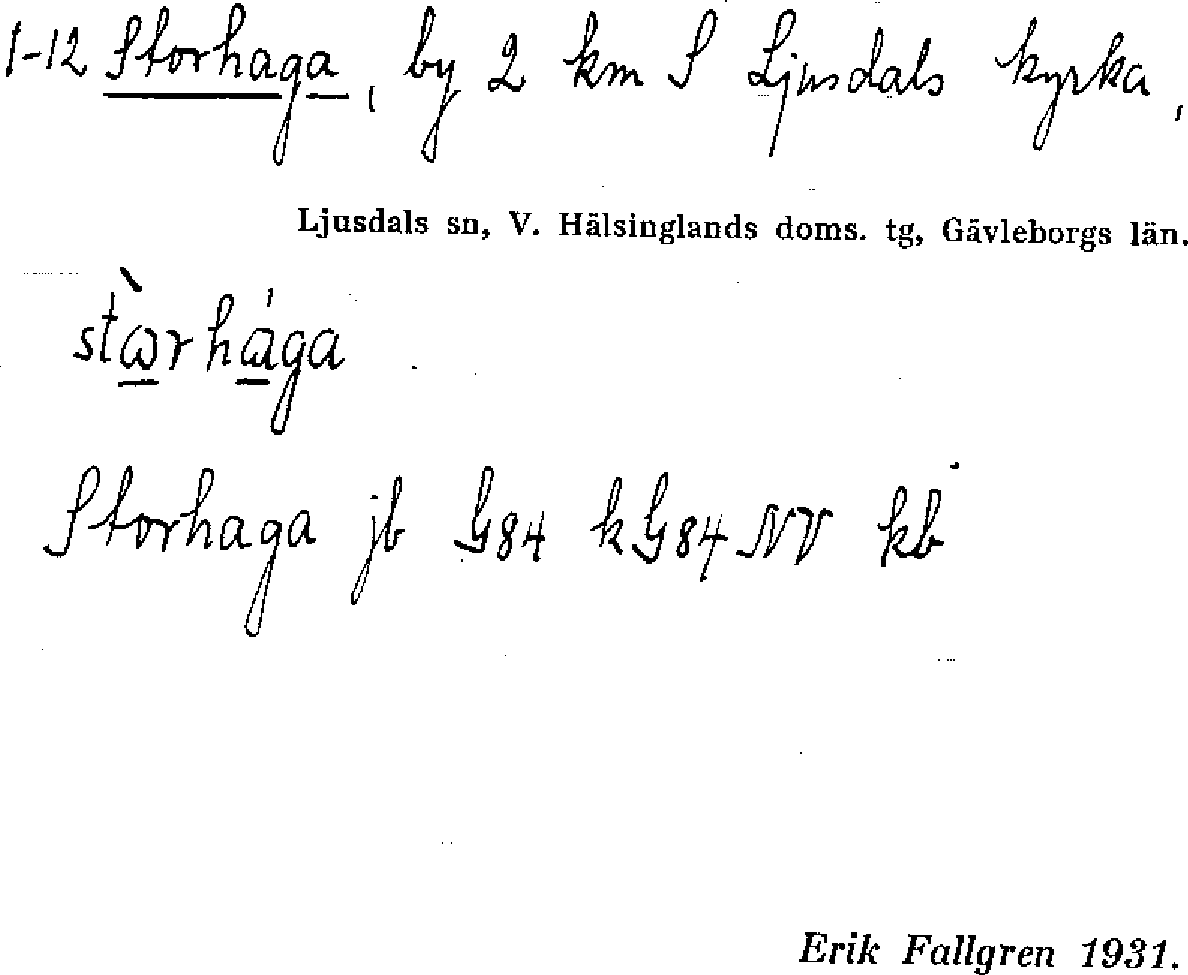 1-12 Storhaga, by 2 km S Ljusdals kyrka,
Ljusdals sn, V. Hälsinglands doms. tg, Gävleborgs län.
stὼrhága
Storhaga jb G84 kG84NV kb
Erik Fallgren 1931.